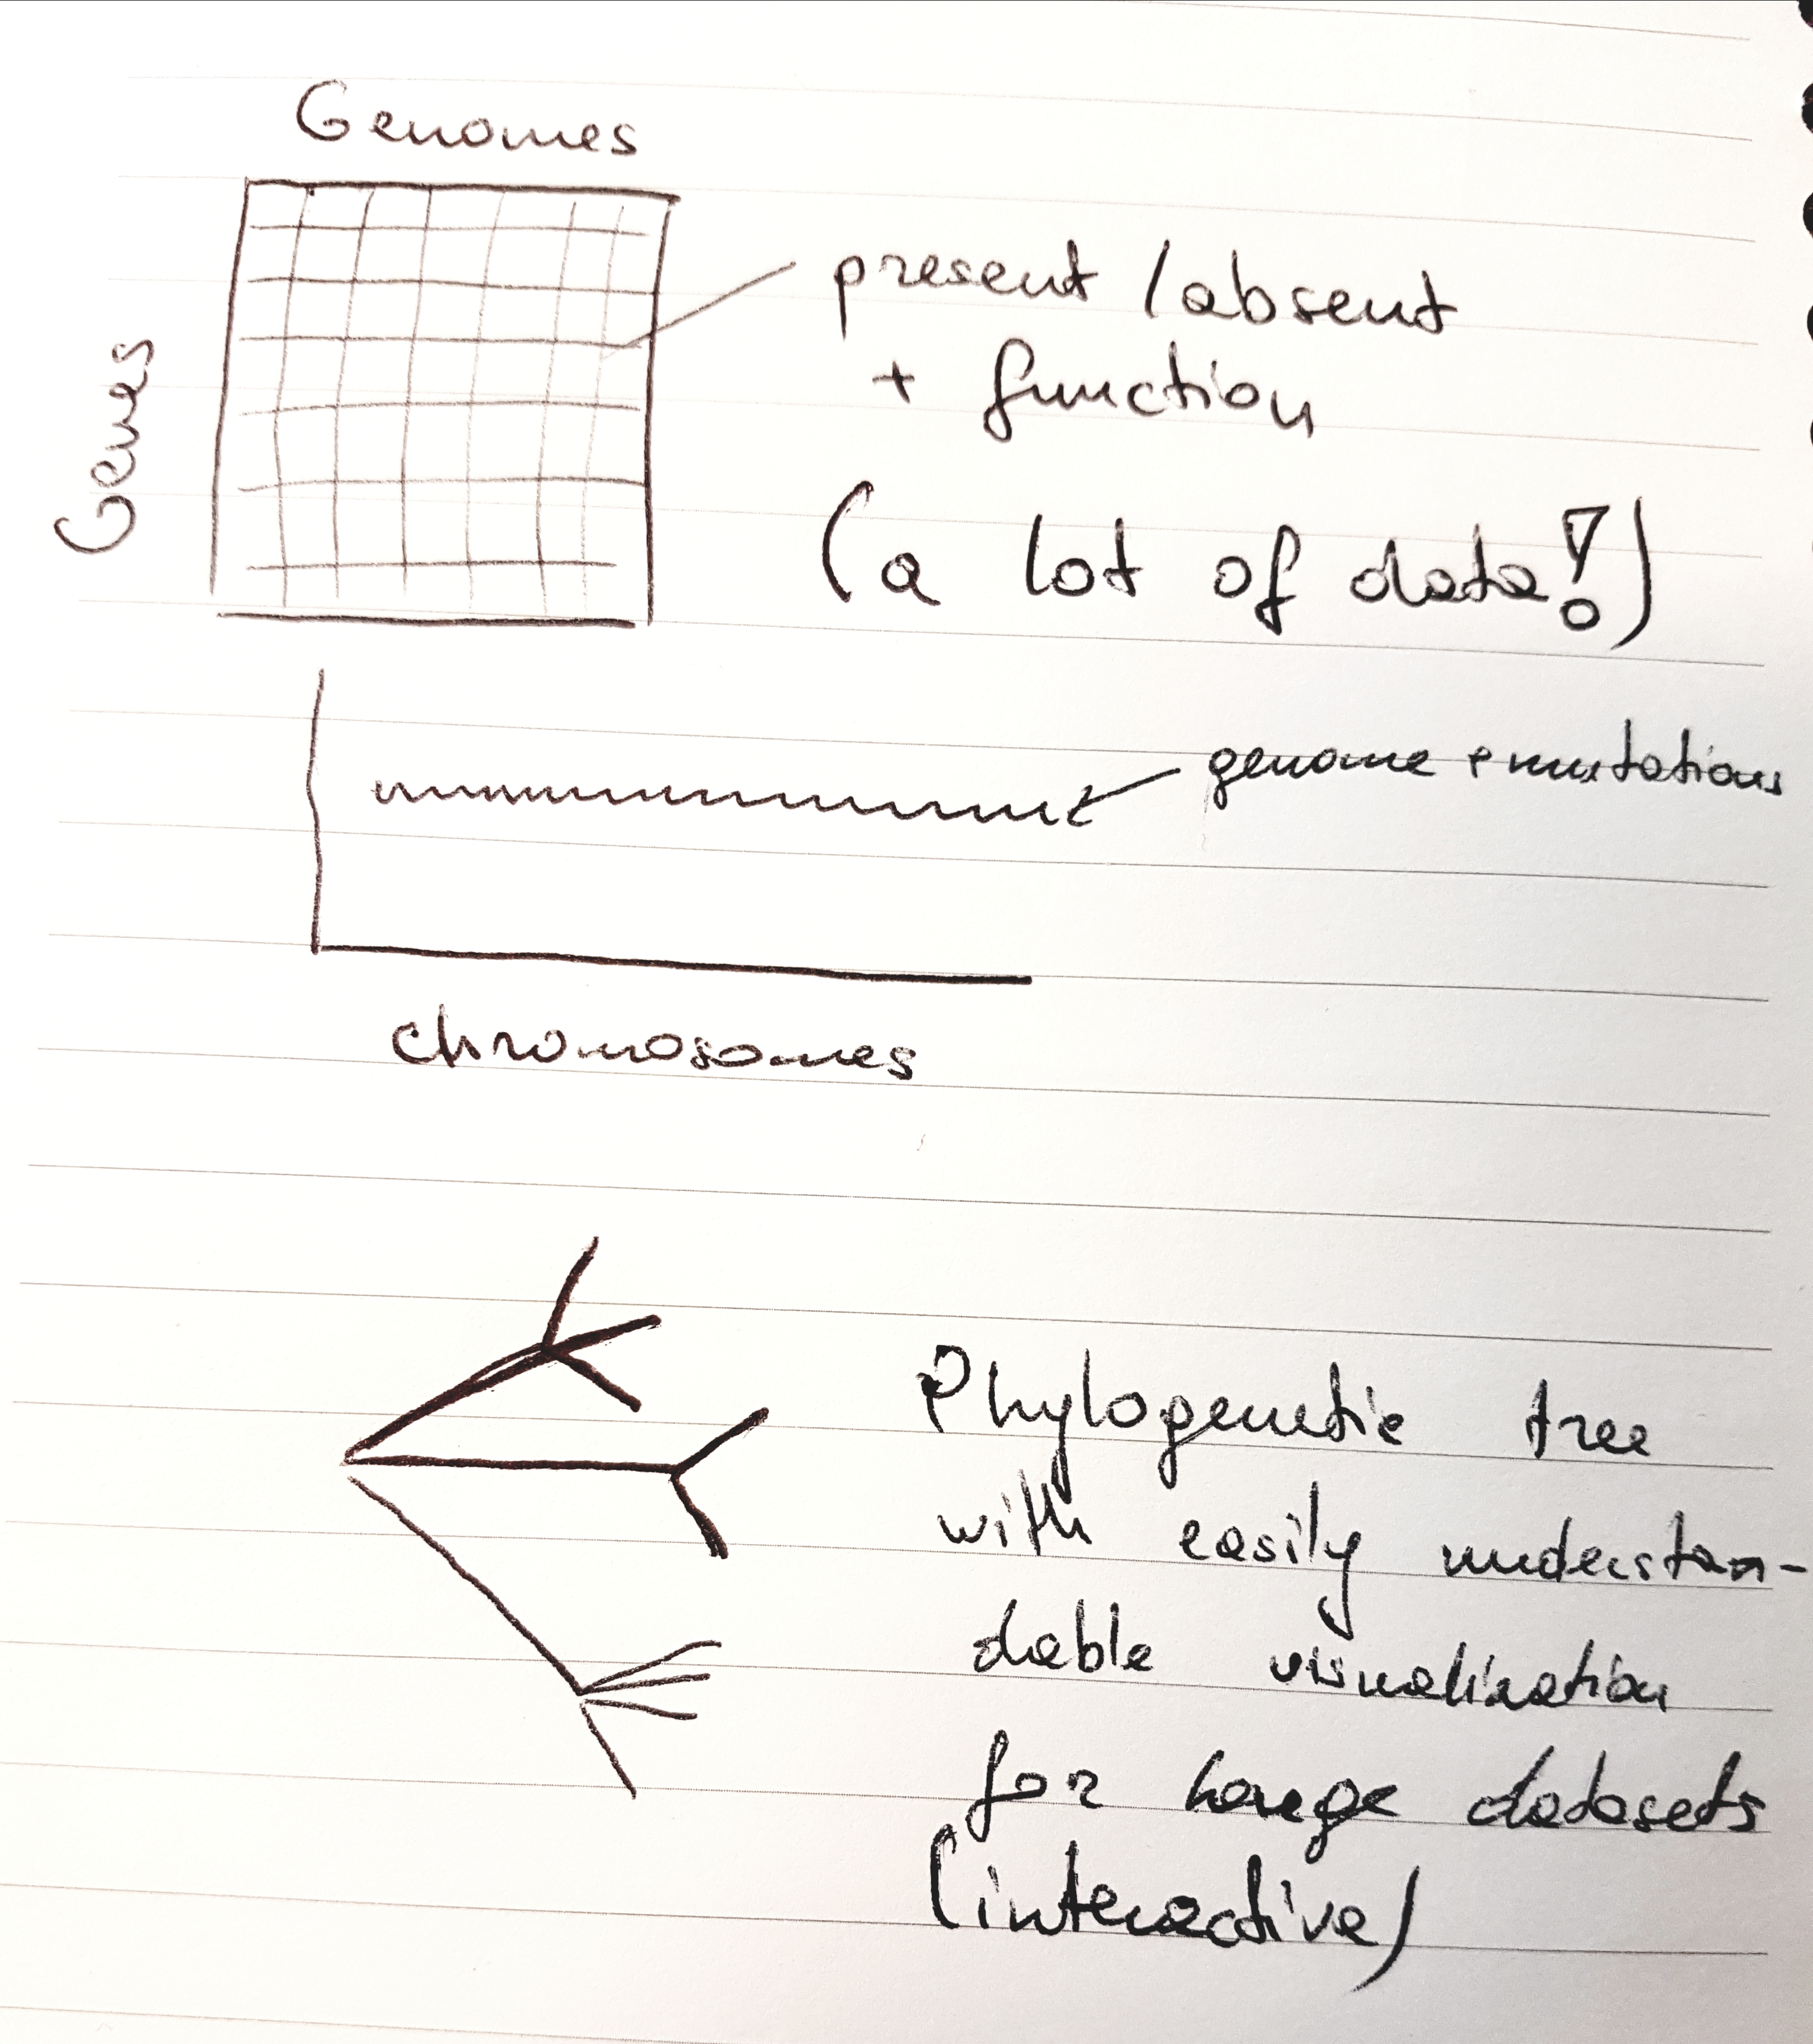 Genomes
Genes
present / absent
+ function
(a lot of data!)
genome + mutations
chromosomes
Phylogenetic tree
with easily understan-
dable visualization
for large datasets
(interactive)